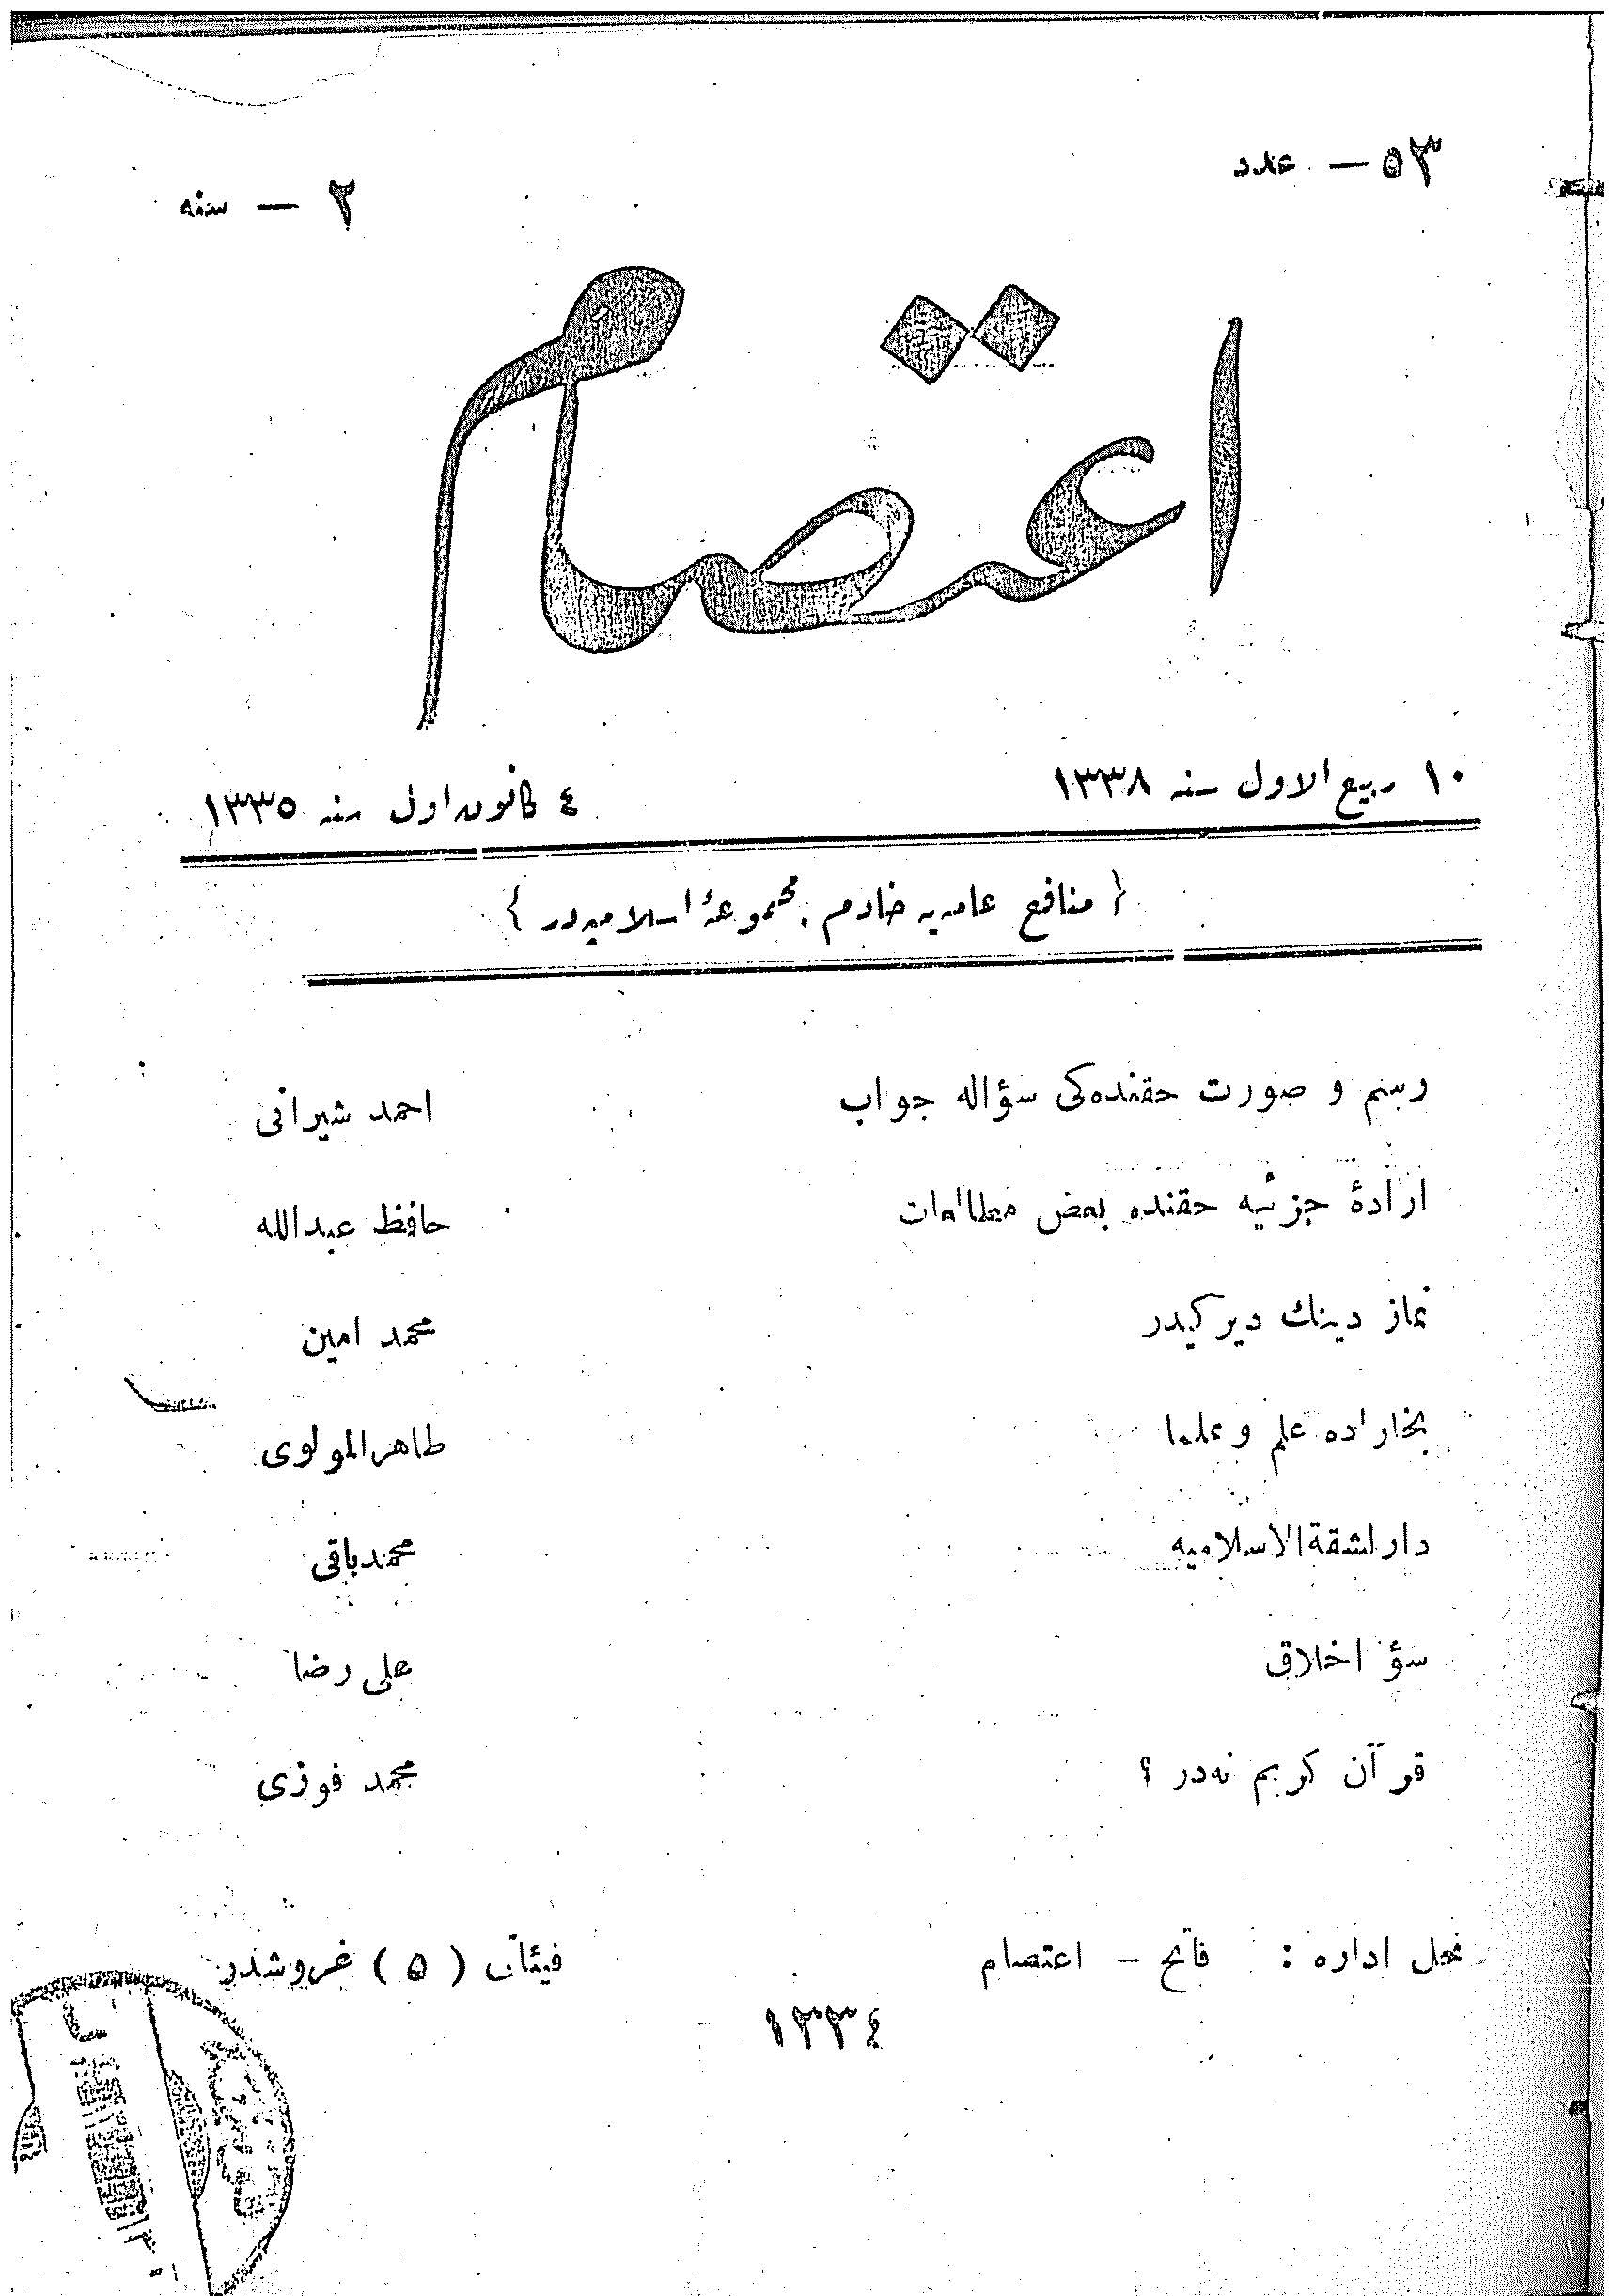 ٥٣ — عدد
٢ — سنه
اعتصام
١٠ ربیع الاول سنه ١٣٣٨
٤ كانون اول سنه ١٣٣٥
{ منافع عامه‌یه خادم مجموعهٔ اسلامیه‌در }
رسم و صورت حقنده‌كی سؤاله جواب
احمد شیرانی
ارادهٔ جزئیه حقنده بعض مطالعات
حافظ عبدالله
نماز دینك دیركیدر
محمد امین
بخاراده علم و علما
طاهرالمولوی
دارلشقةالاسلامیه
محمدباقی
سؤ اخلاق
علی رضا
قرآن كریم نه‌در ؟
محمد فوزی
محل اداره : فاتح – اعتصام
فیئاتی ( ٥ ) غروشدر
١٣٣٤